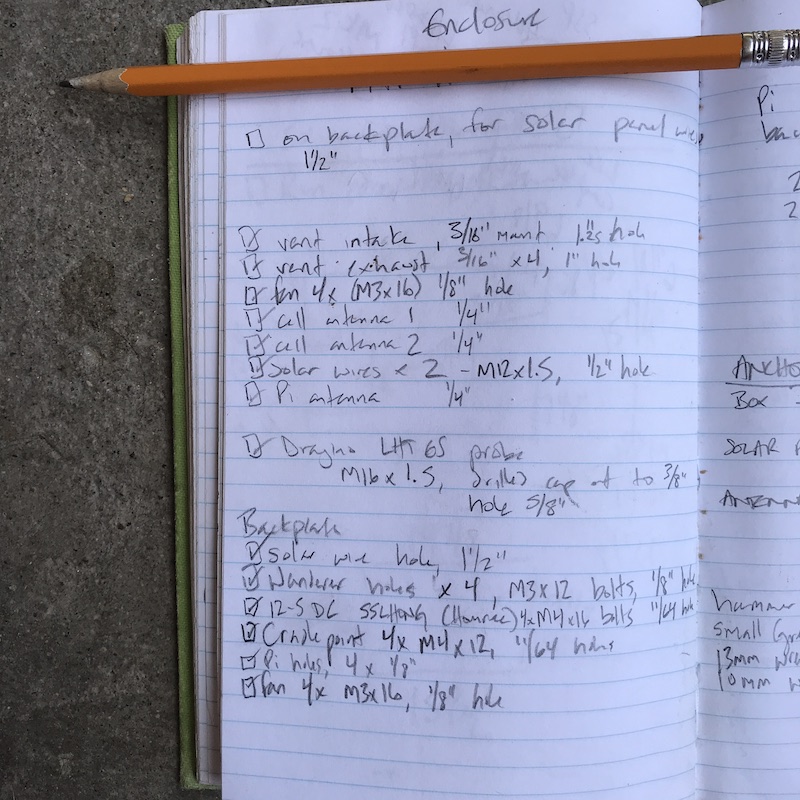 Enclosure
☐ on backplate, for solar panel wires
1 1/2"
☑ vent intake, 3/16" mount 1.25" hole
☑ vent exhaust 3/16" x 4, 1" hole
☑ fan 4x (M3x16) 1/8" hole
☑ cell antenna 1 1/4"
☑ cell antenna 2 1/4"
☑ solar wires x 2 - M12x1.5, 1/2" hole
☑ Pi antenna 1/4"
☑ Dragino LHT 65 probe
M16 x 1.5, drilled cap out to 3/8"
hole 5/8"
Backplate
☑ Solar wire hole, 1 1/2"
☑ Wanderer holes x 4, M3x12 bolts, 1/8" hole
☑ 12-5 DC 4xM4x16 bolts 11/64 hole
☑ Crade point 4x M4x12, 11/64 holes
☑ Pi holes, 4 x 1/8"
☑ fan 4x M3x16, 1/8" hole
Pi
2
2
Box -
SOLAR
hammer
small
13mm
10mm